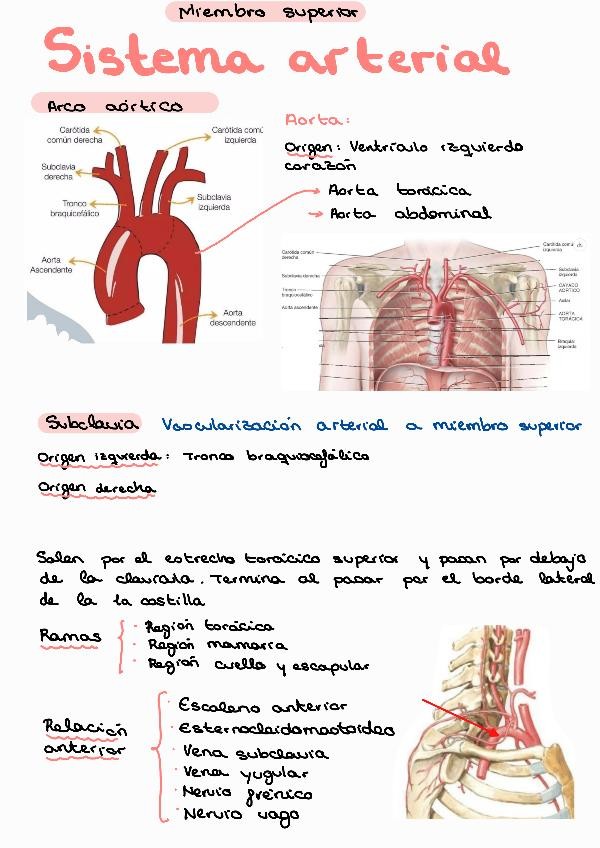 Miembro superior
Sistema arterial
Arco aórtico
Carótida común derecha
Carótida comú izquierda
Subclavia derecha
Subclavia izquierda
Tronco braquicefálico
Aorta Ascendente
Aorta descendente
Aorta:
Origen: Ventrículo izquierdo
corazón
→ Aorta torácica
→ Aorta abdominal
Carótida común derecha
Carótida comú izquierda
Subclavia derecha
Subclavia izquierda
Tronco braquicefálico
CAYADO AÓRTICO
Aorta ascendente
Axilar
AORTA TORÁCICA
Braquial izquierda
Subclavia Vascularización arterial a miembro superior
Origen izquierda: Tronco braquiocefálico
Origen derecha
Salen por el estrecho torácico superior y pasan por debajo
de la clavícula. Termina al pasar por el borde lateral
de la 1a costilla
Ramas
· Región torácica
· Región mamaria
· Región cuello y escapular
Relación
anterior
· Escaleno anterior
· Esternocleidomastoideo
· Vena subclavia
· Vena yugular
· Nervio frénico
· Nervio vago